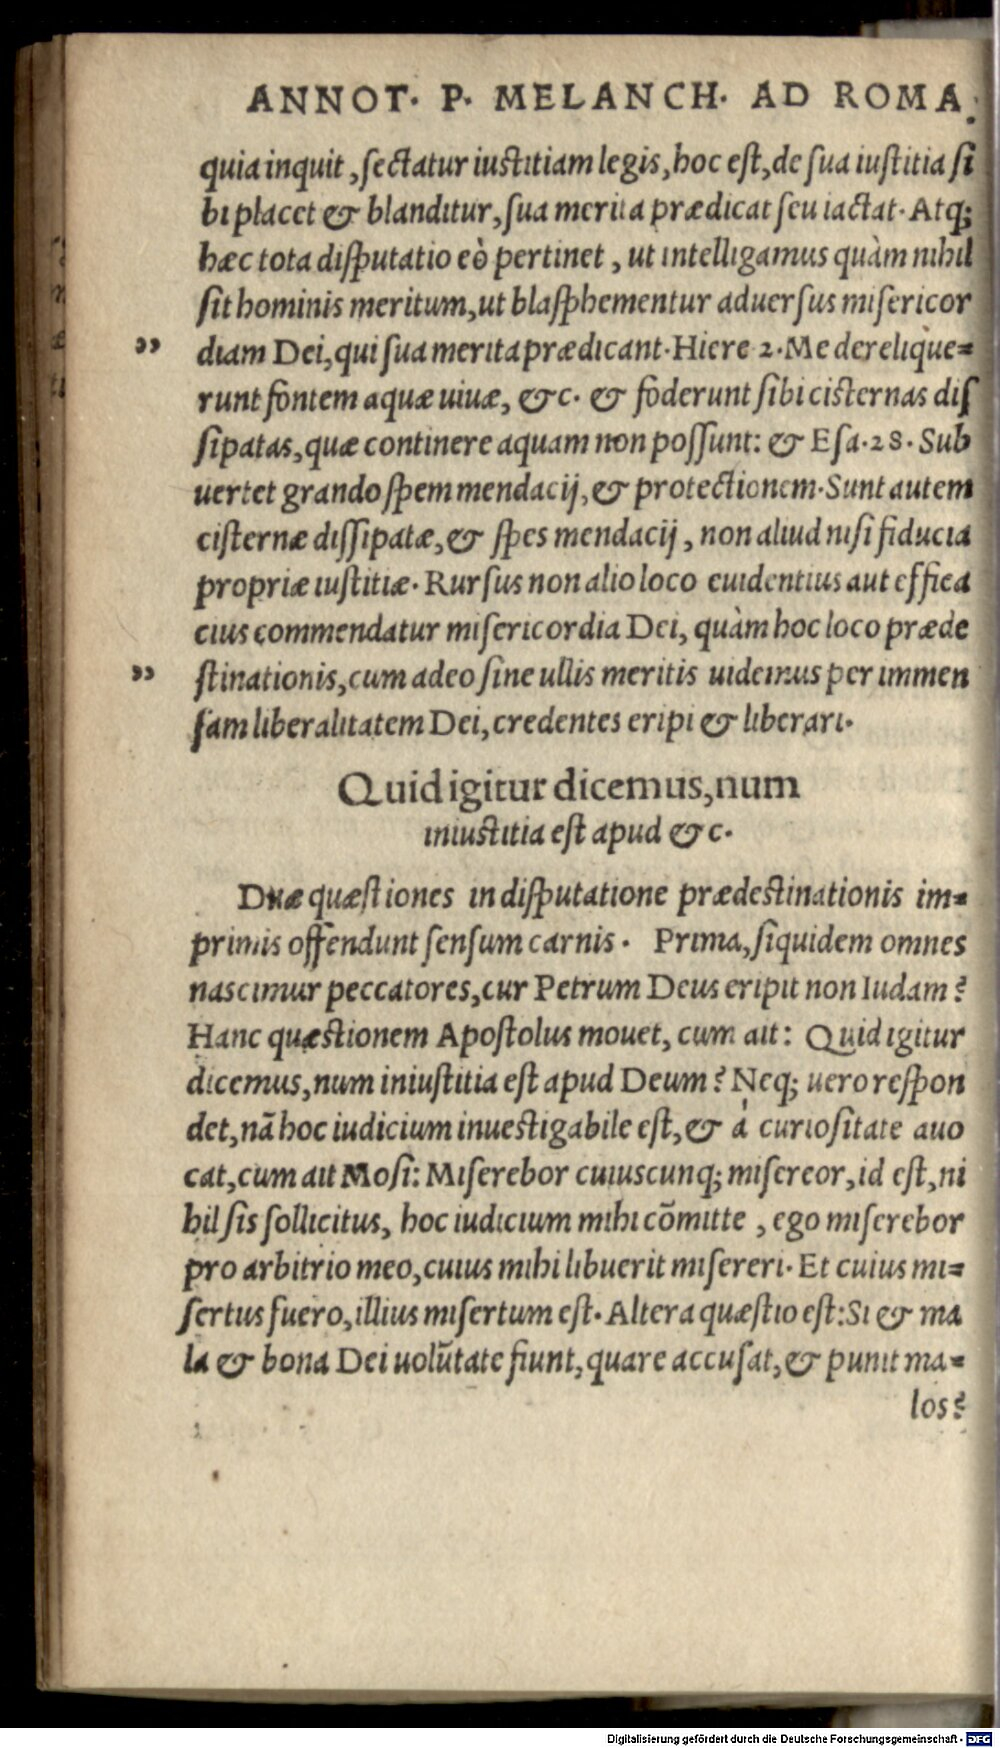 ANNOT. P. MELANCH. AD ROMA.
quia inquit, sectatur iustitiam legis, hoc est, de sua iustitia si
bi placet & blanditur, sua merita prædicat seu iactat. Atq;
hæc tota disputatio eò pertinet, ut intelligamus quàm nihil
sit hominis meritum, ut blasphementur aduersus misericor
„ diam Dei, qui sua merita prædicant. Hiere 2. Me derelique=
runt fontem aquæ uiuæ, &c. & foderunt sibi cisternas dis
sipatas, quæ continere aquam non possunt: & Esa. 28. Sub
uertet grando spem mendacij, & protectionem. Sunt autem
cisternæ dissipatæ, & spes mendacij, non aliud nisi fiducia
propriæ iustitiæ. Rursus non alio loco euidentius aut effica
cius commendatur misericordia Dei, quàm hoc loco præde
„ stinationis, cum adeo sine ullis meritis uidemus per immen
sam liberalitatem Dei, credentes eripi & liberari.
Quid igitur dicemus, num
iniustitia est apud &c.
Duæ quæstiones in disputatione prædestinationis im=
primis offendunt sensum carnis. Prima, siquidem omnes
nascimur peccatores, cur Petrum Deus eripit non Iudam?
Hanc quæstionem Apostolus mouet, cum ait: Quid igitur
dicemus, num iniustitia est apud Deum? Neq; uero respon
det, nã hoc iudicium inuestigabile est, & à curiositate auo
cat, cum ait Mosi: Miserebor cuiuscunq; misereor, id est, ni
hil sis sollicitus, hoc iudicium mihi cõmitte, ego miserebor
pro arbitrio meo, cuius mihi libuerit misereri. Et cuius mi=
sertus fuero, illius misertum est. Altera quæstio est: Si & ma
la & bona Dei uolũtate fiunt, quare accusat, & punit ma=
los?
Digitalisierung gefördert durch die Deutsche Forschungsgemeinschaft - DFG